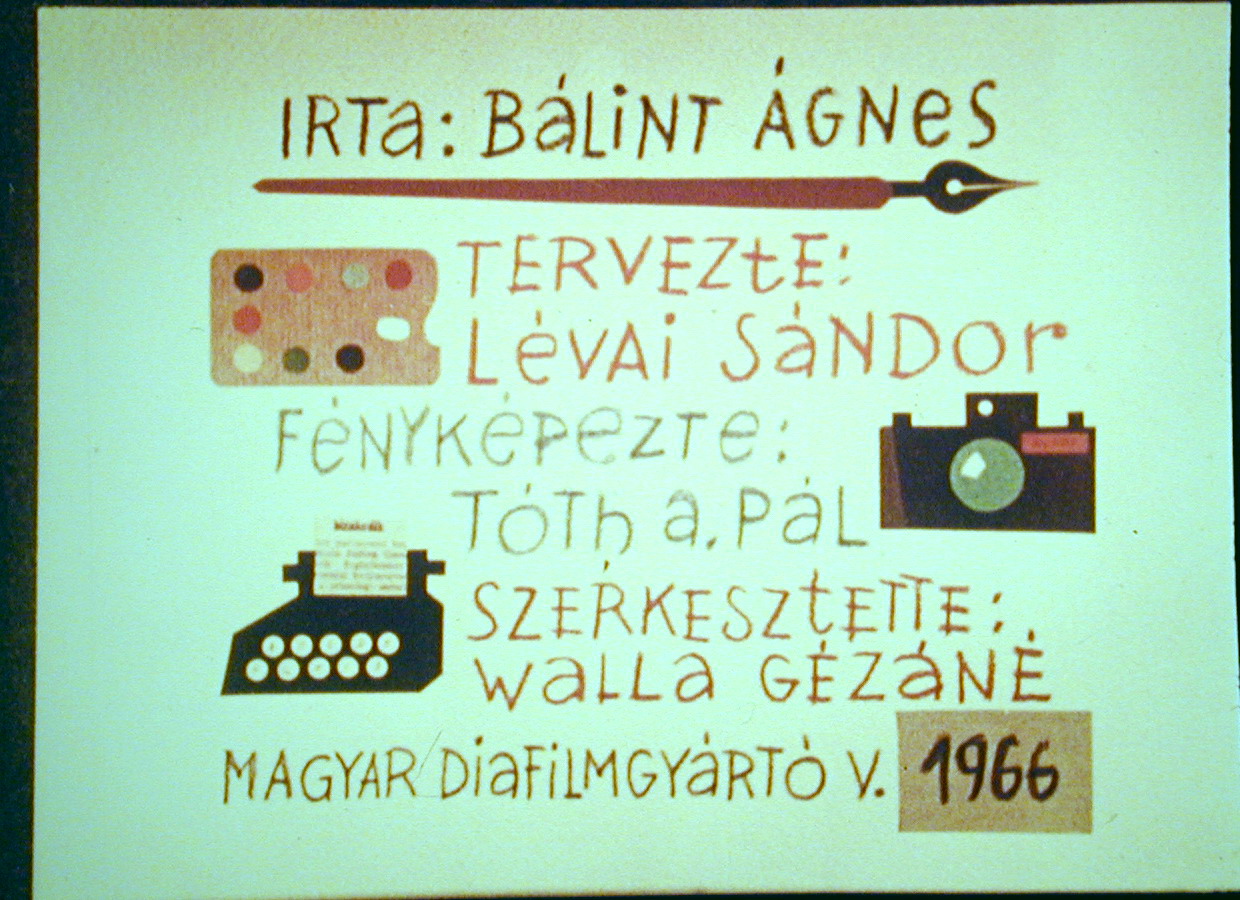 IRTa: BáLiNT ÁGNeS
TERVEZtE:
LéVAi SáNDor
FéNYKéPEZTe:
TÓTh a. PáL
SZERKESZtETTE:
WaLLa GÉZáNÉ
MAGYAR DiaFiLMGYáRTÓ V. 1966